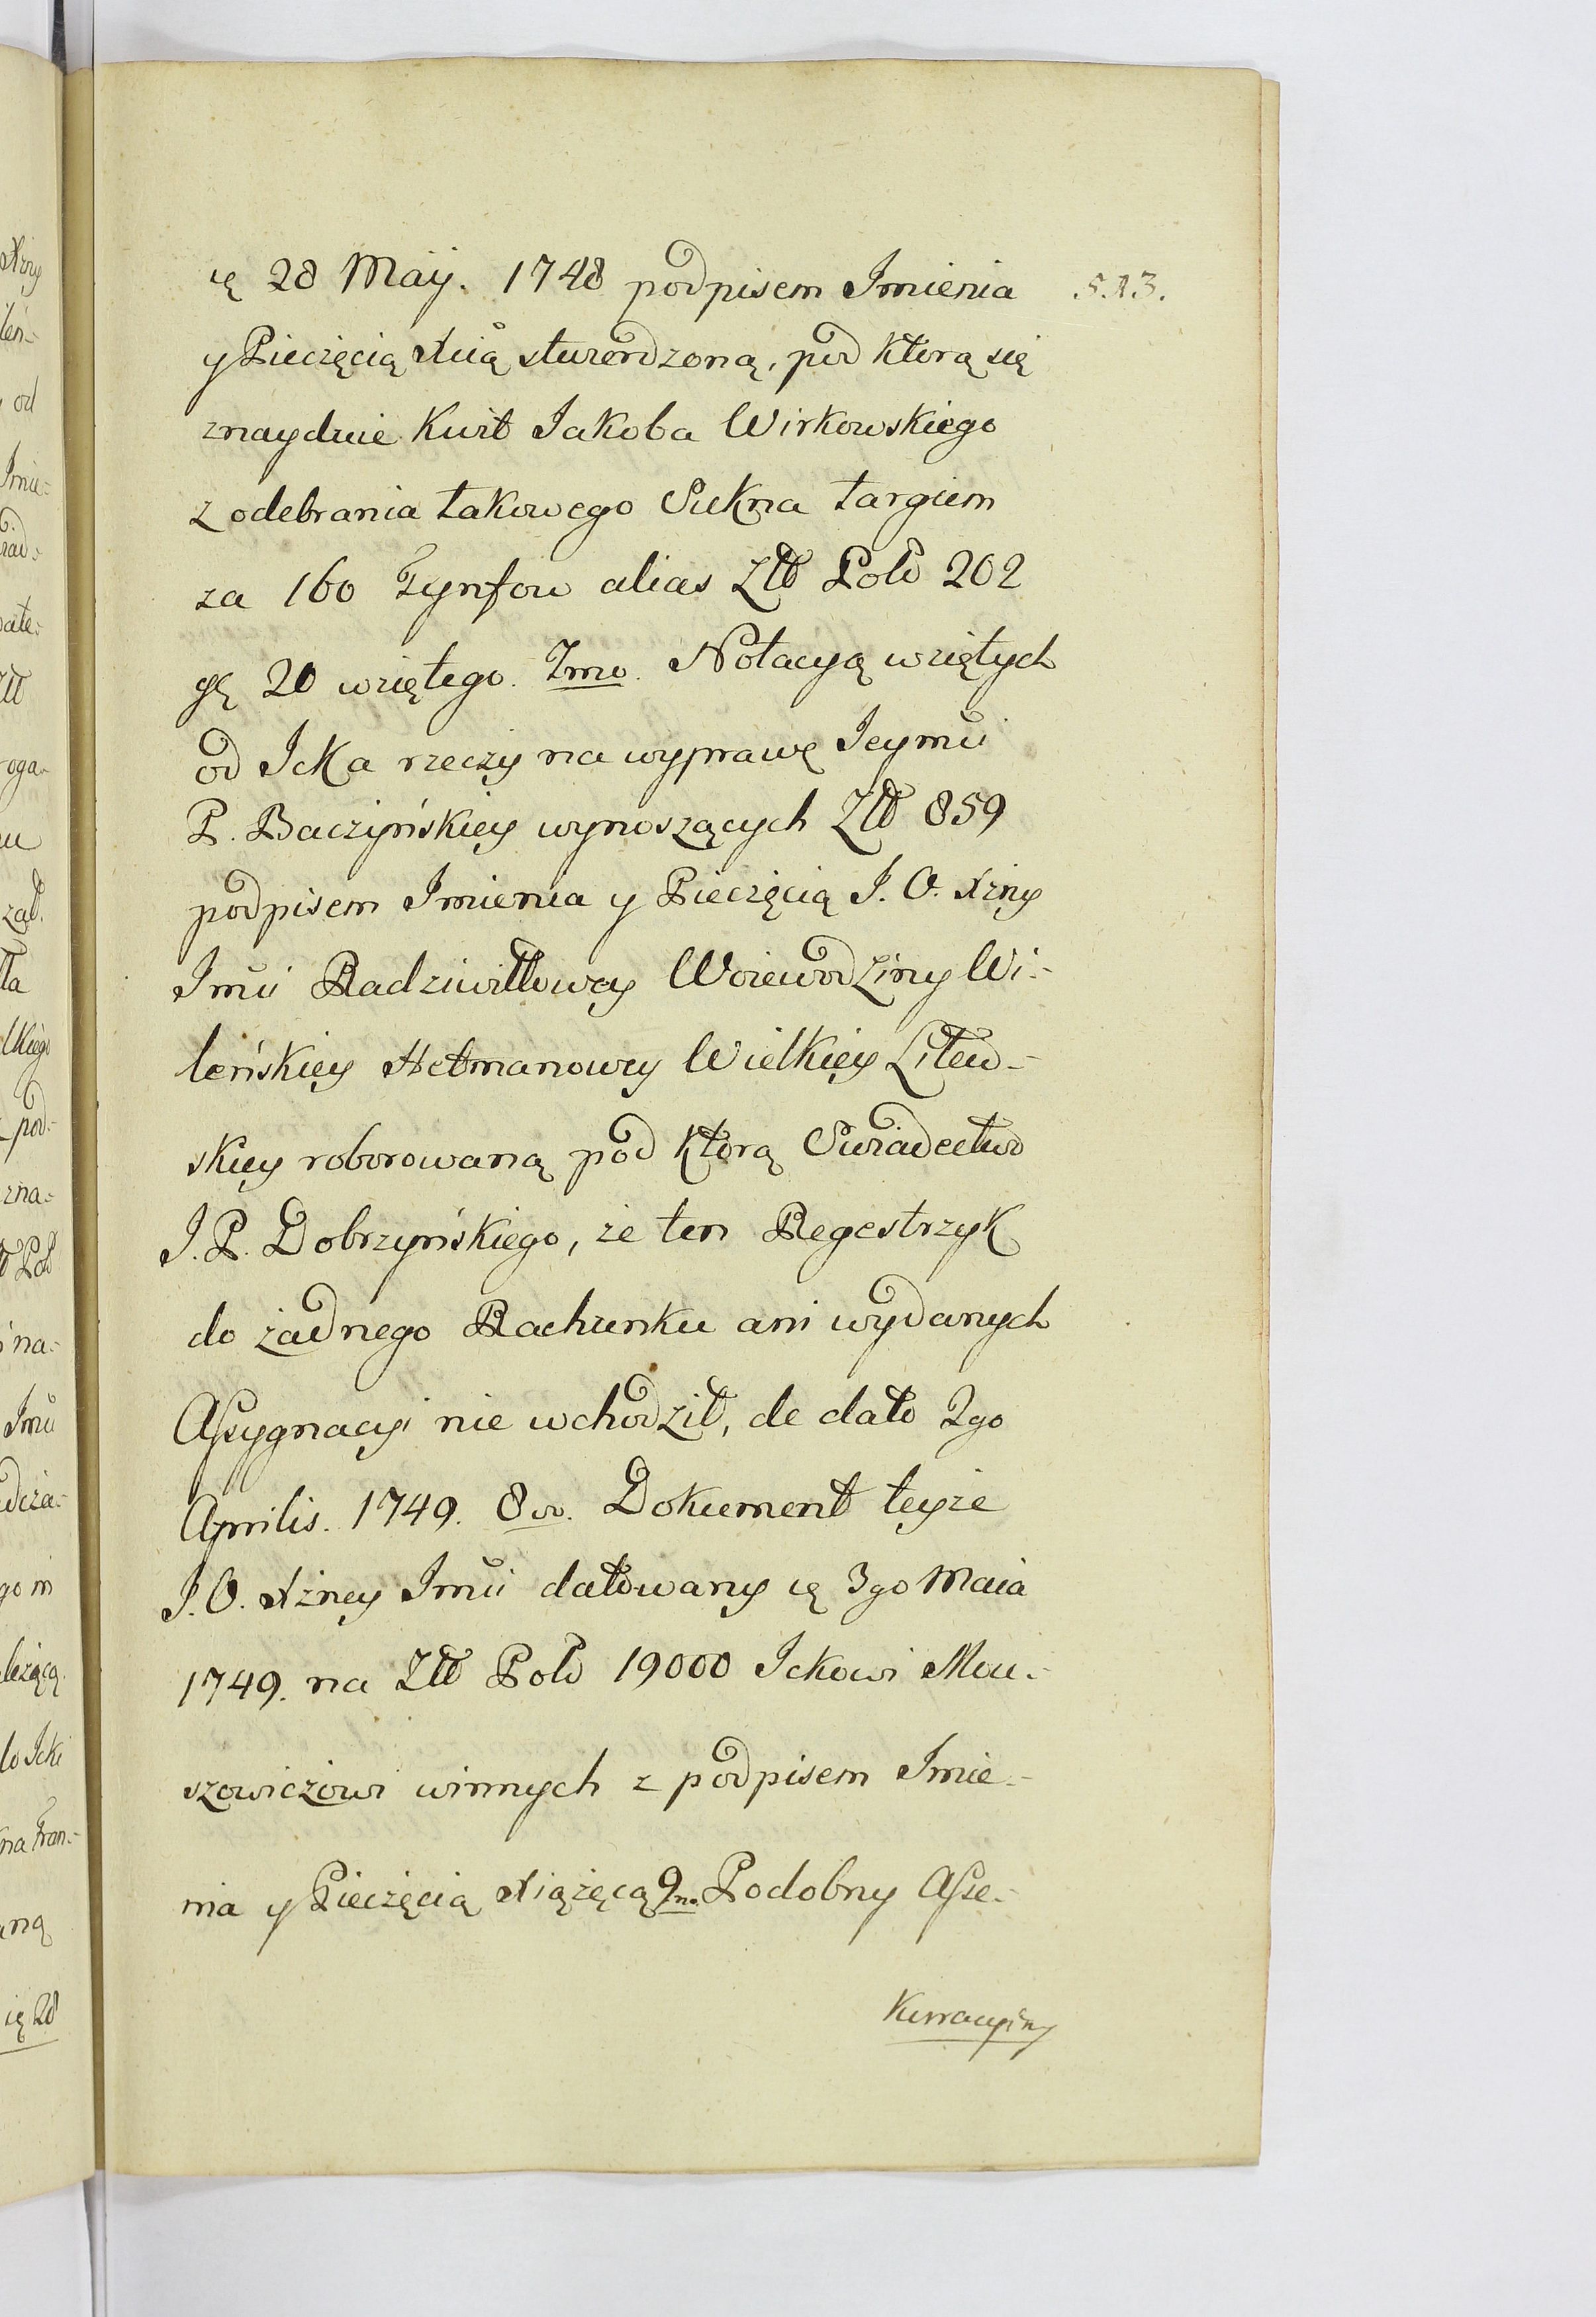 ię 28 Maij. 1748 podpisem Imienia
y Pieczęcią Xcią stwierdzoną, pod ktorą się
znayduie Kwit Jakoba Wirkowskiego
z odebrania takowego Sukna targiem
za 160 Tynfow alias Złł Pols 202
gę 20 wziętego. 7mo. Notacyą wziętych
od Icka rzeczy na wyprawę Jeymći
P. Baczyńskiey wynoszących Złł 859
podpisem Imienia y Pieczęcią J. O. Xzny
Jmći Radziwiłłowey Woiewodziny Wi-
leńskiey Hetmanowey Wielkiey Litew-
skiey roborowaną pod ktorą Swiadectwo
J. P. Dobrzyńskiego, że ten Regestrzyk
do żadnego Rachunku ani wydanych
Assygnacyi nie wchodził, de dato 2go
Aprilis. 1749. 8vo. Dokument teyże
J. O. Xżney Jmći datowany ię 3go Maia
1749. na Złł Pols 19000 Ickowi Mou-
szowiczowi winnych z podpisem Imie-
nia y Pieczęcią Xiążęcą 9no. Podobny Asse-
kuracyiny